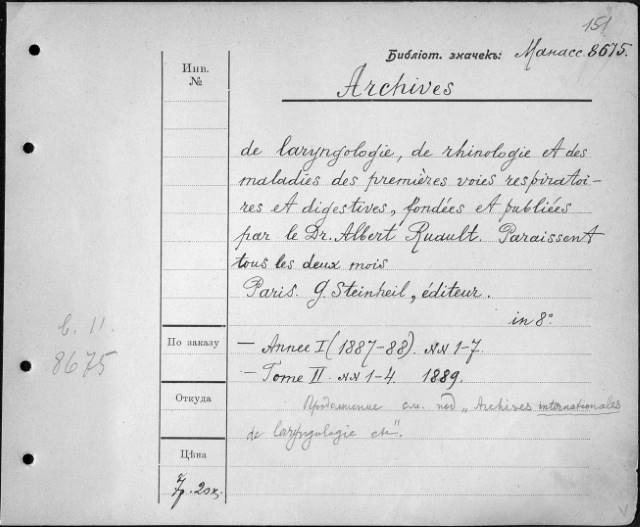 151
Библіот. значекъ: Манасс. 8675.
Инв.
№
Archives
de laryngologie, de rhinologie et des
maladies des premières voies respiratoi-
res et digestives, fondées et publiées
par le Dr. Albert Ruault. Paraissent
tous les deux mois
Paris. G. Steinheil, éditeur.
in 8°
8675
По заказу
— Annee I (1887-88). NN 1-7.
— Tome II NN 1-4. 1889.
Откуда
Продолжение см. под „Archives internationales
de laryngologie etc".
Цѣна